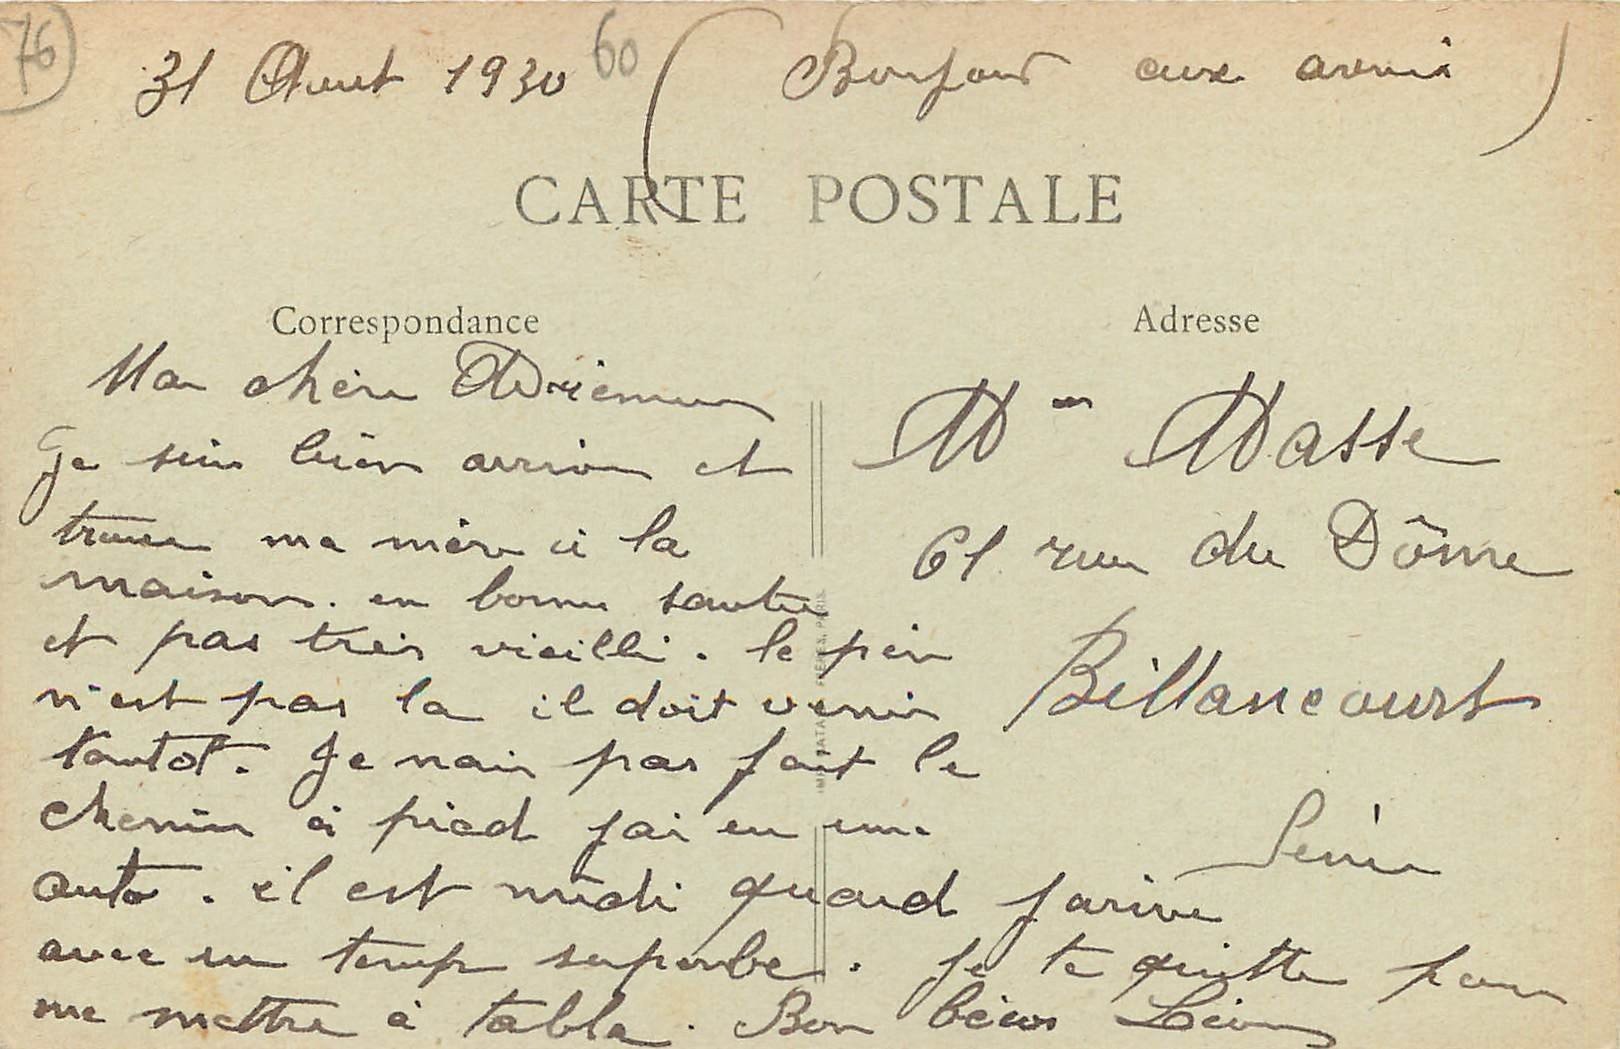 76
31 Aout 1930
60
(Bonjour aux amis)
CARTE POSTALE
Correspondance
Adresse
Ma chère Adrienne
Je suis bien arrivé et
trouve ma mère à la
maison. en bonne santée
et pas très vieilli. le père
n'est pas la il doit venir
tantot. Je nais pas fait le
chemin à pied jai eu une
auto. il est midi quand jarive
avec un temp superbe. je te quitte pour
me mettre à table. Bon béco Léon
Mme Masse
61 rue du Dôme
Billancourt
Seine